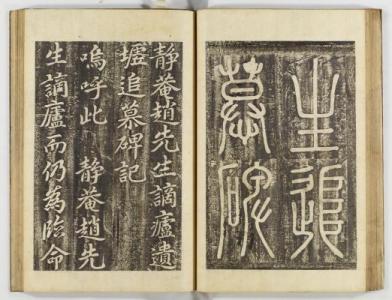 生追
慕碑
静菴趙先生謫廬遺
墟追慕碑記
嗚呼此 静菴趙先
生謫廬而仍為臨命